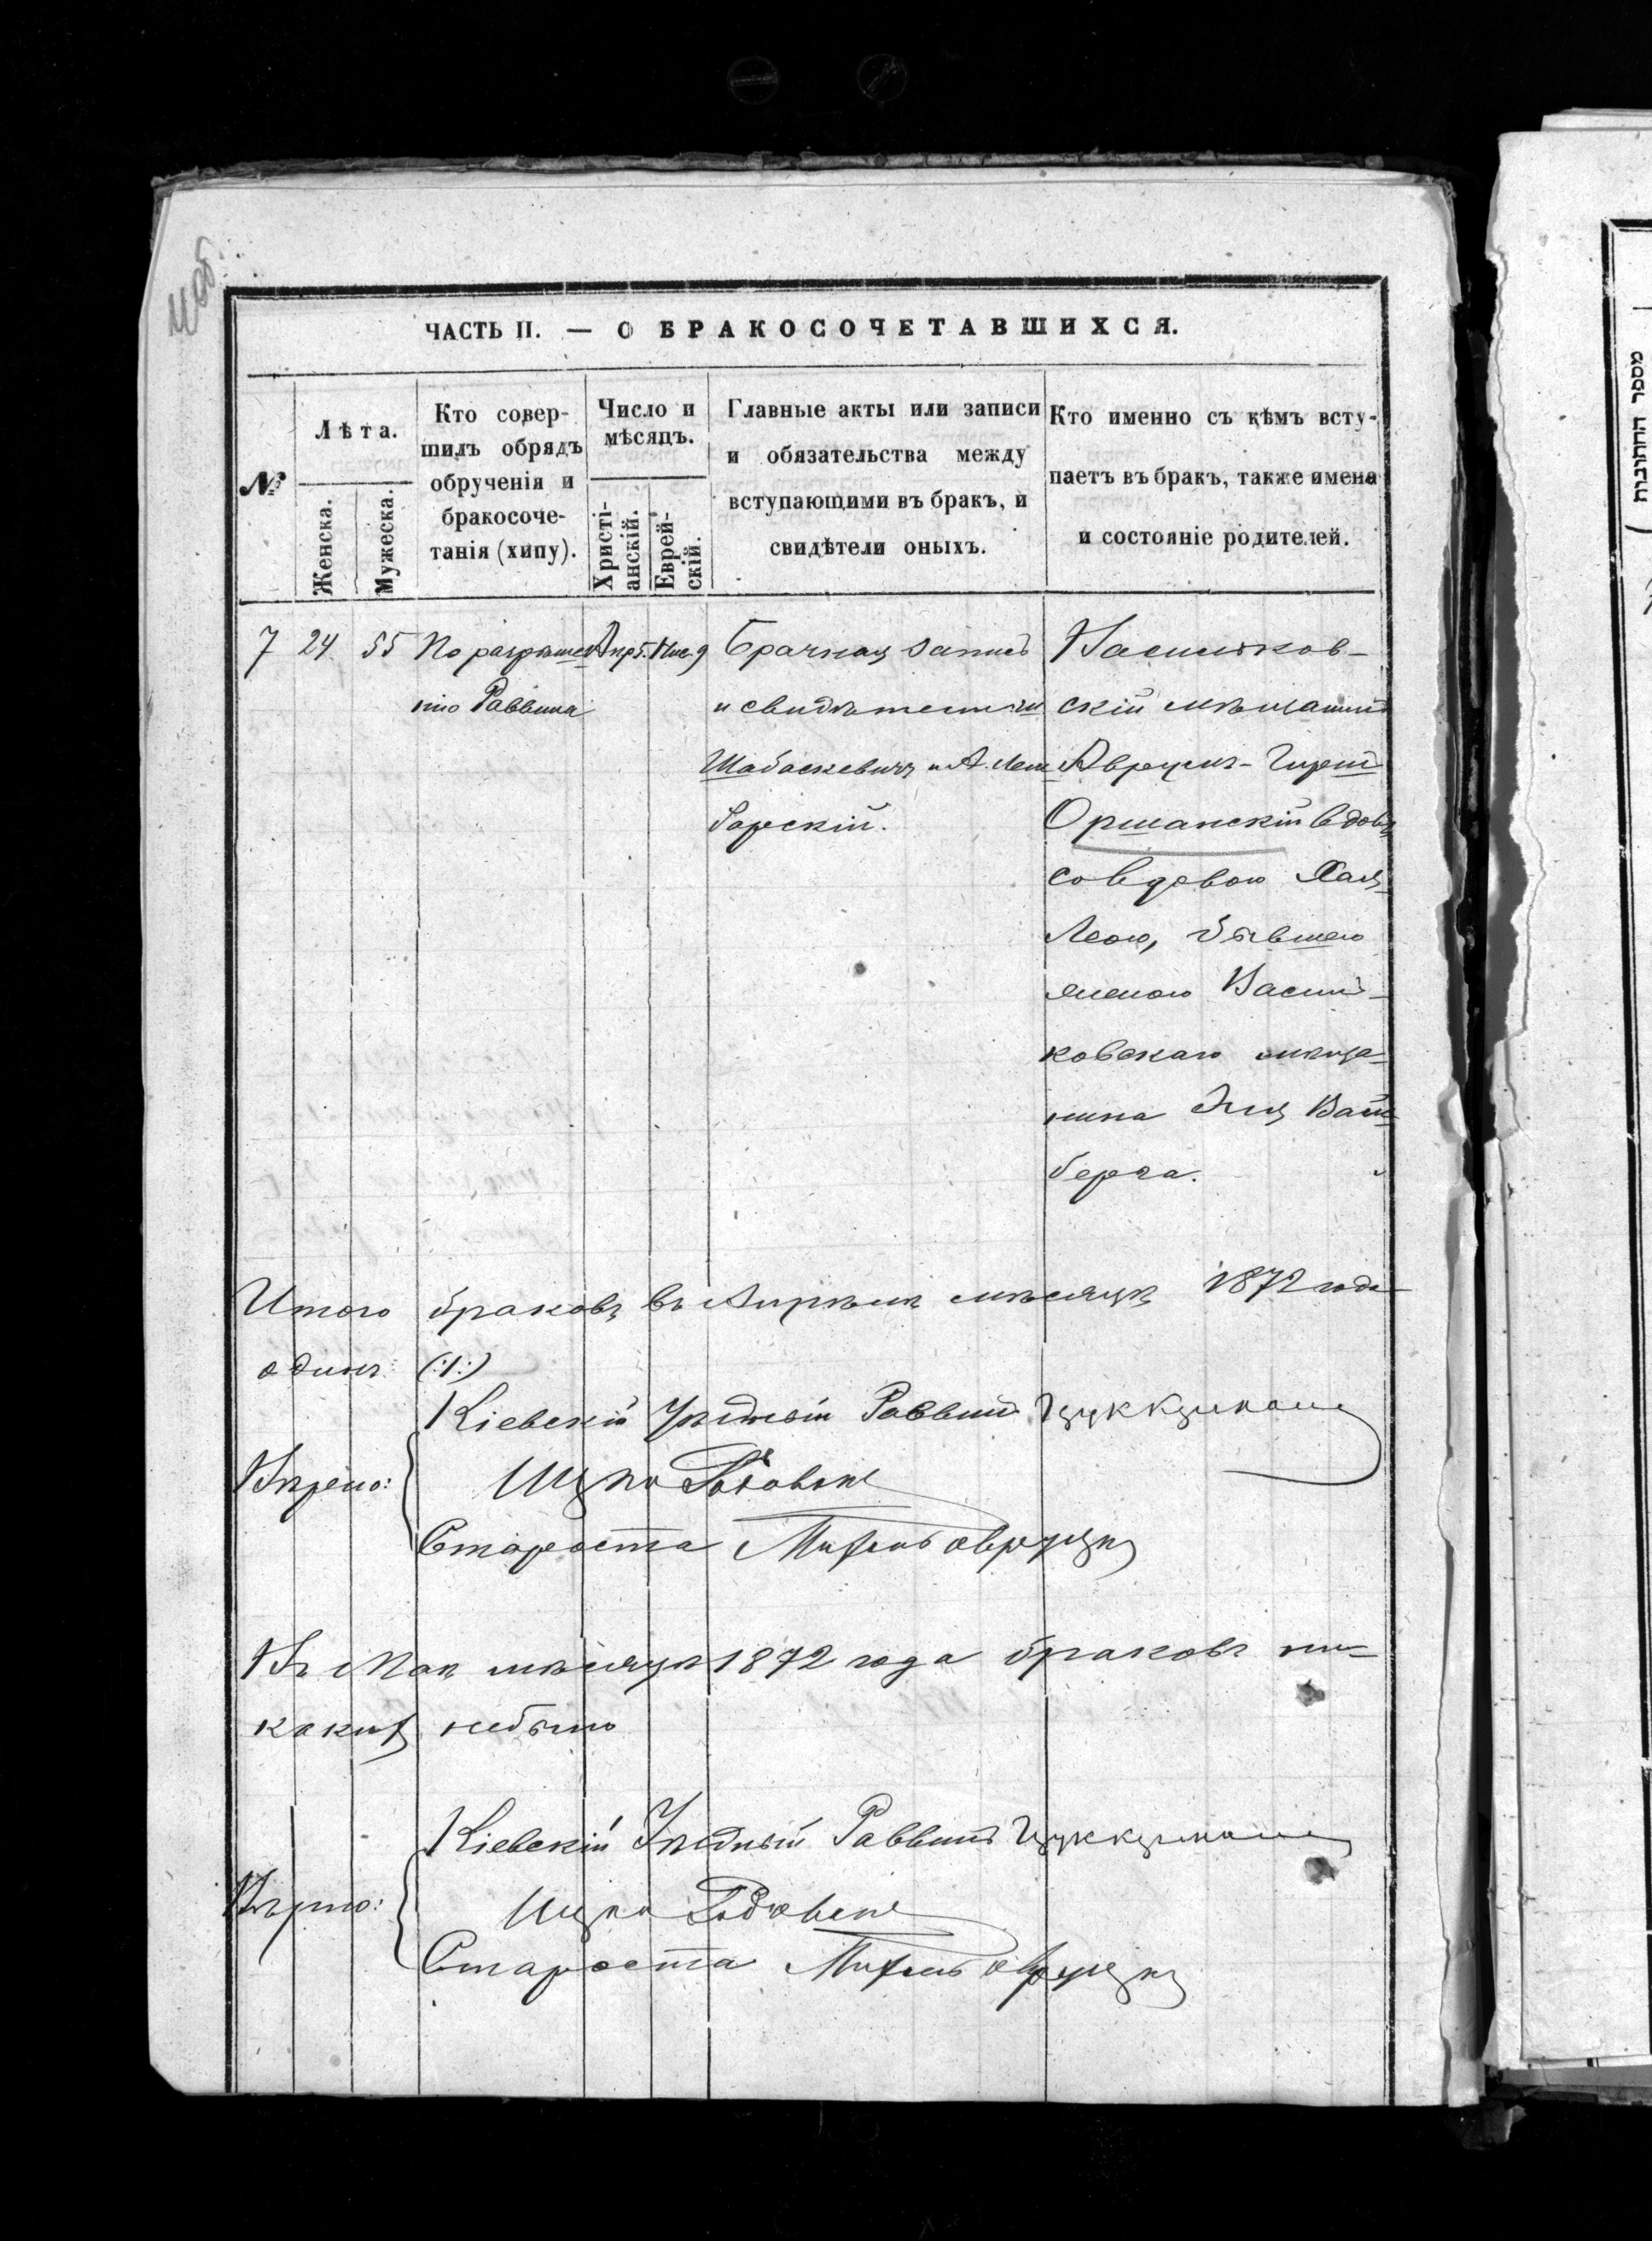 ЧАСТЬ II. — О БРАКОСОЧЕТАВШИХСЯ.
№
Лѣта.
Женска.
Мужеска.
Кто совер-
шилъ обрядъ
обрученія и
бракосоче-
танія (хипу).
Число и
мѣсяцъ.
Христі-
анскій.
Еврей-
скій.
Главные акты или записи
и обязательства между
вступающими въ бракъ, и
свидѣтели оныхъ.
Кто именно съ кѣмъ всту-
паетъ въ бракъ, также имена
и состояніе родителей.
7
24
55
По разрѣше
нію Раввина
Апр 5.
Нис. 9
Брачная запись
и свидѣтели: Ш
Шабаскевичъ и А.
барскій.
Васильков-
скій мѣщанинъ
Аврумъ-Гирш
Оршанскій вдовъ
со вдовою Хая-
Леою, бывшею
женою Василь-
ковскаго мѣща-
нина Эли Вайн-
берга.
Итого браковъ въ Апрѣлѣ мѣсяцѣ 1872 года
одинъ (:1:)
Кіевскій Уѣздный Раввинъ Цуккерманъ
Вѣрно:
Ицко
Староста Михель Авруцкий
Въ Маѣ мѣсяцѣ 1872 года браковъ ни-
какихъ небыло
Кіевскій Уѣздный Раввинъ Цуккерманъ
Вѣрно:
Ицко
Староста Михель Авруцкий
מספר החתונות